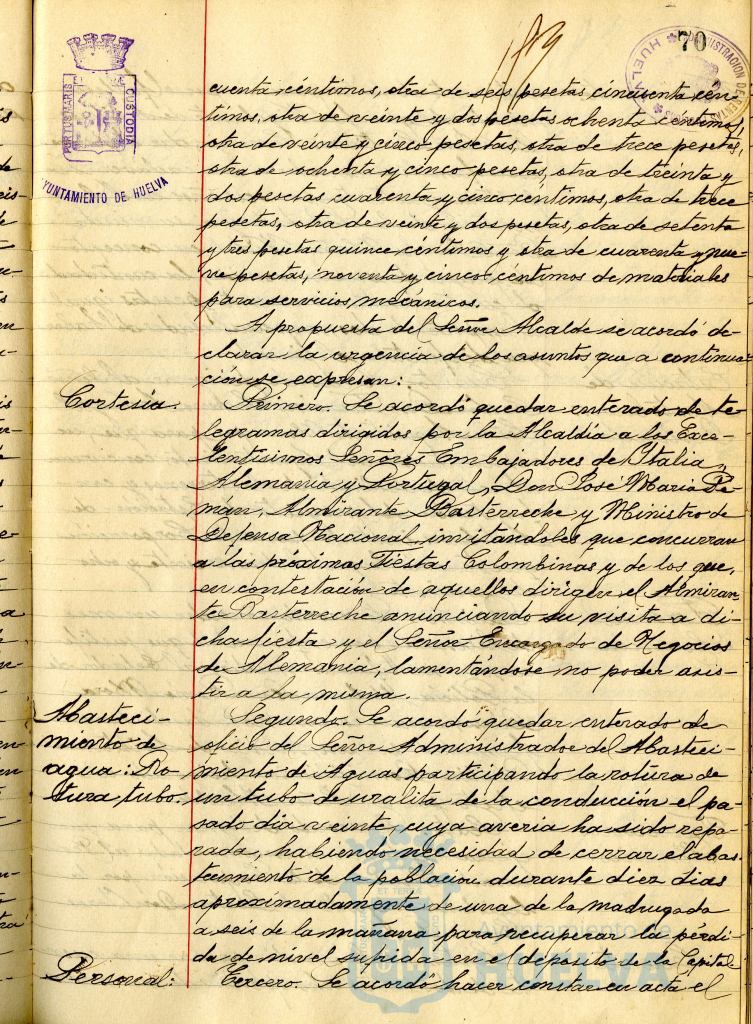 119
70
ADMINISTRACION DE
HUELVA
PORTUS MARIS
CUSTODIA
AYUNTAMIENTO DE HUELVA
cuenta céntimos, otra de seis pesetas cincuenta cén-
timos, otra de veinte y dos pesetas ochenta céntimos,
otra de veinte y cinco pesetas, otra de trece pesetas,
otra de ochenta y cinco pesetas, otra de treinta y
dos pesetas cuarenta y cinco céntimos, otra de trece
pesetas, otra de veinte y dos pesetas, otra de setenta
y tres pesetas quince céntimos y otra de cuarenta y nue-
ve pesetas, noventa y cinco céntimos de materiales
para servicios mecánicos.
A propuesta del Señor Alcalde se acordó de-
clarar la urgencia de los asuntos que a continua-
ción se expresan:
Cortesía.
Primero. Se acordó quedar enterado de te-
legramas dirigidos por la Alcaldía a los Exce-
lentísimos Señores Embajadores de Italia,
Alemania y Portugal, Don José María Pe-
mán, Almirante Basterreche y Ministro de
Defensa Nacional, invitándoles que concurran
a las próximas Fiestas Colombinas y de los que,
en contestación de aquellos dirigen el Almiran-
te Basterreche anunciando su visita a di-
cha fiesta y el Señor Encargado de Negocios
de Alemania, lamentándose no poder asis-
tir a la misma.
Abasteci-
miento de
agua: Ro-
tura tubo.
Segundo. Se acordó quedar enterado de
oficio del Señor Administrador del Abasteci-
miento de Aguas participando la rotura de
un tubo de uralita de la conducción el pa-
sado dia veinte, cuya averia ha sido repa-
rada, habiendo necesidad de cerrar el abas-
tecimiento de la población durante diez dias
aproximadamente de una de la madrugada
a seis de la mañana para recuperar la pérdi-
da de nivel sufrida en el depósito de la Capital
Personal:
Tercero. Se acordó hacer constar en acta el
Ayuntamiento de
HUELVA